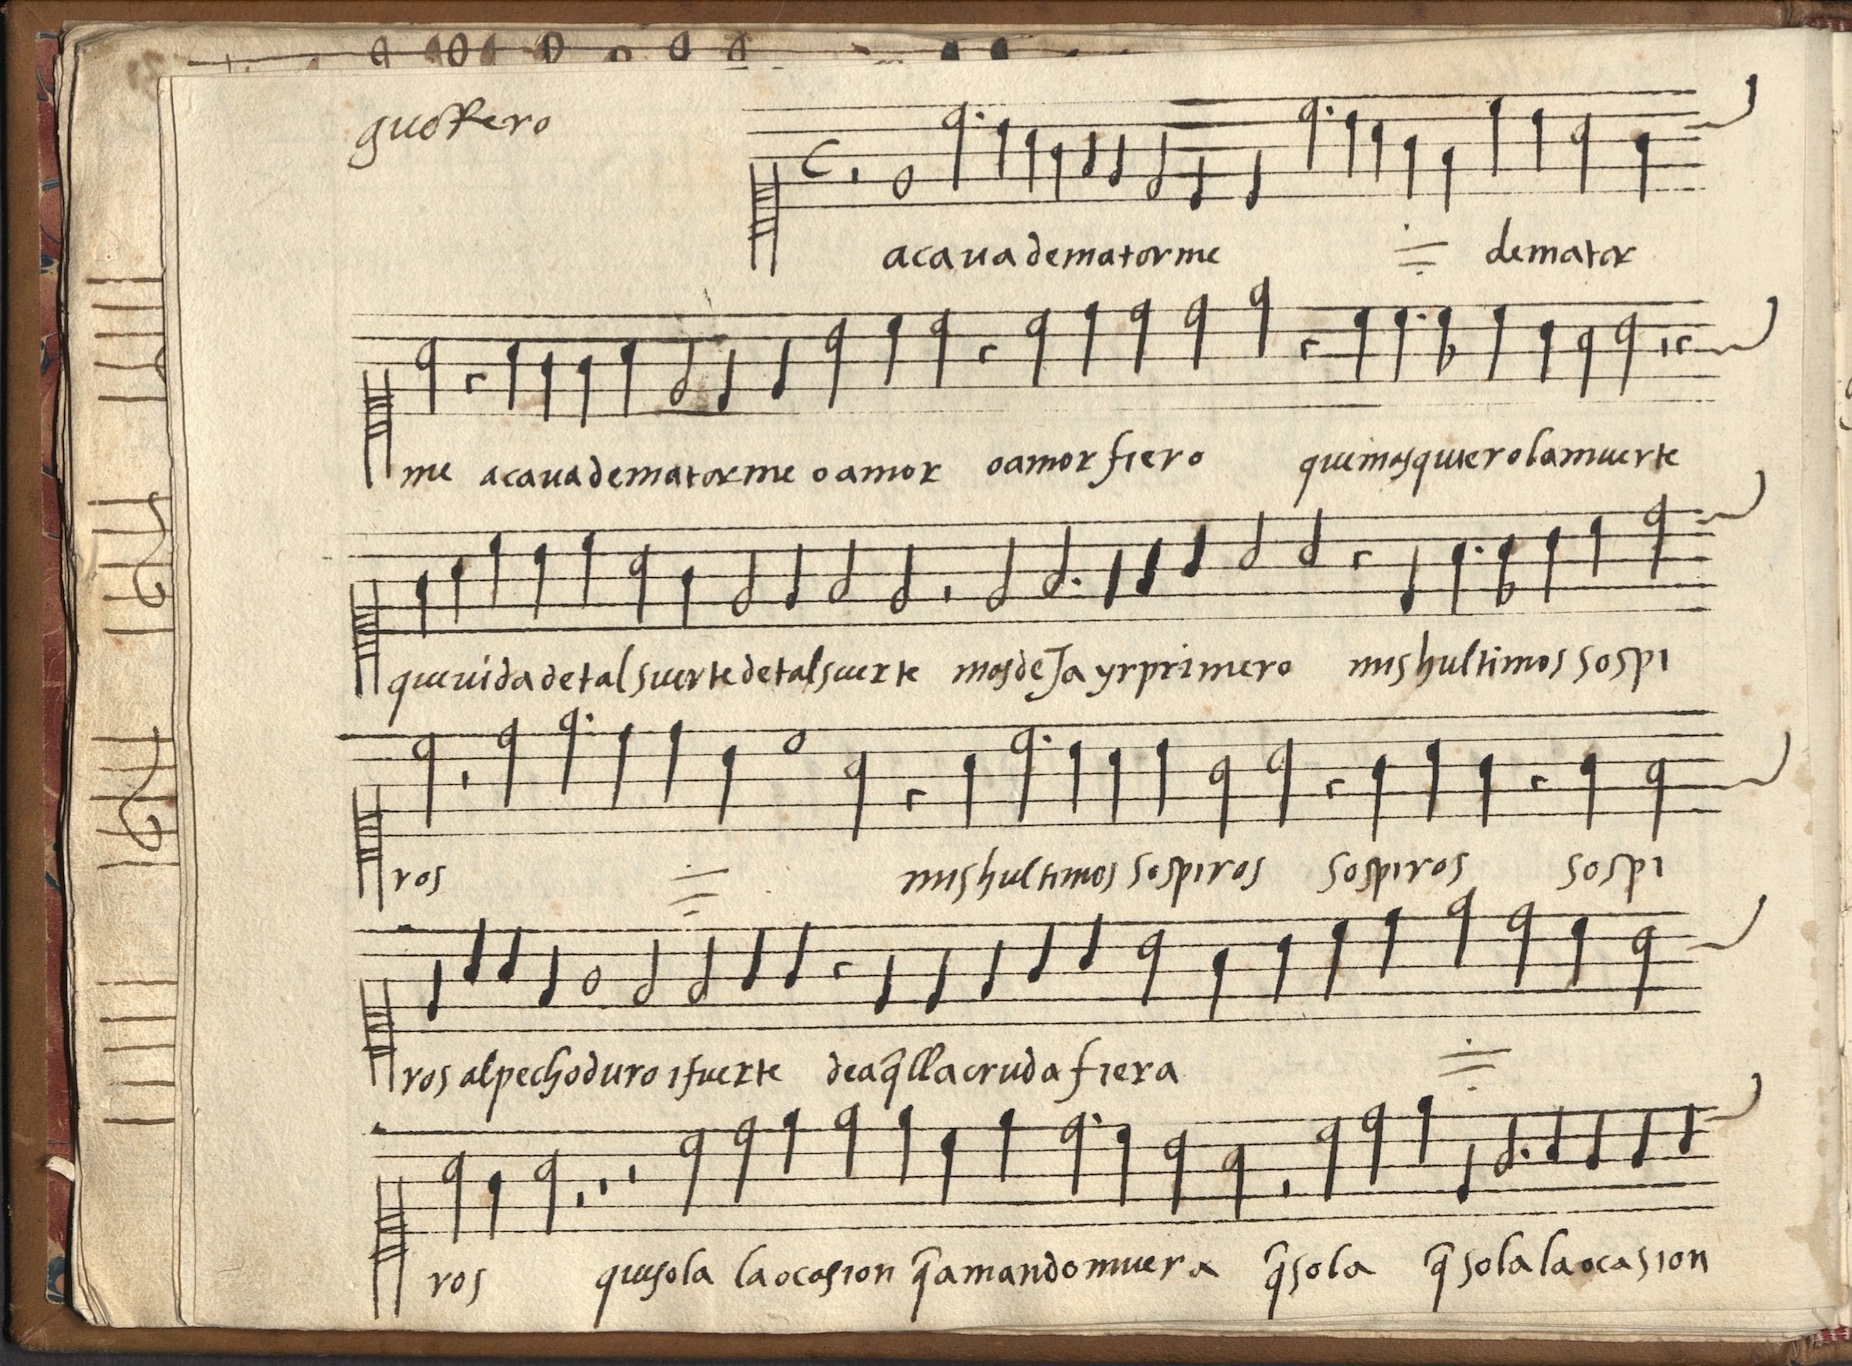 guerrero
acaua dematarme dematar
me acaua dematarme o amor o amor fiero que mas quiero la muerte
que uida de tal suerte de tal suerte mas deJa yr primero mis hultimos sospi
ros mis hultimos sospiros sospiros sospi
ros al pecho duro i fuerte de aq̃lla cruda fiera
ros que sola la ocasion q̃ amando muera q̃ sola q̃ sola la ocasion